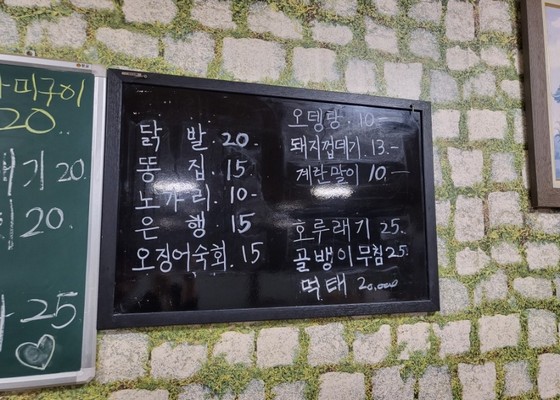 미구이
20..
기 20.
20.
25
닭 발 20.
똥 집. 15.
노가리. 10-
은 행. 15
오징어숙회. 15
오뎅탕. 10-
돼지껍데기. 13.-
계란말이 10.-
호루래기 25.
골뱅이무침 25.
먹태 20,000